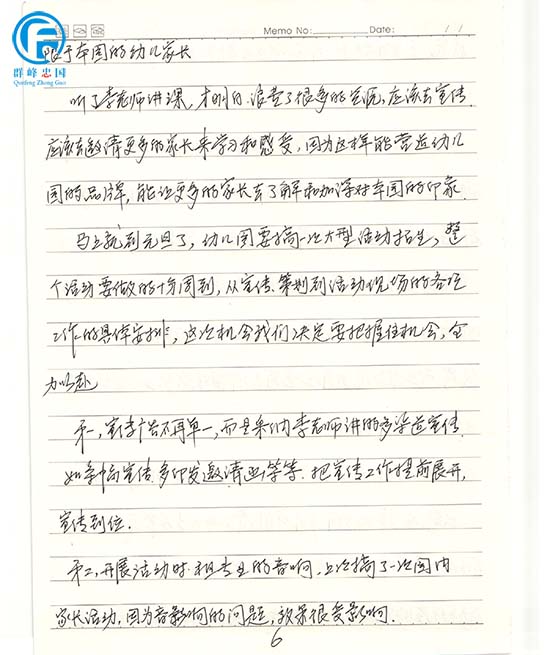 Memo No: Date: / /
群峰忠国
Qunfeng Zhong Guo
限于本园的幼儿家长
听了李老师讲课,才明白浪费了很多的资源,应该去宣传
应该去邀请更多的家长来学习和感受,因为这样能营造幼儿
园的品牌,能让更多的家长去了解和加深对本园的印象
马上就到元旦了,幼儿园要搞一次大型活动招生,整
个活动要做的十分周到,从宣传、策划到活动现场的各项
工作的具体安排,这次机会我们决定要把握住机会,全
力以赴
第一,宣传广告不再单一,而是采纳李老师讲的多渠道宣传
如条幅宣传,多印发邀请函等等.把宣传工作提前展开,
宣传到位.
第二,开展活动时租专业的音响,上次搞了一次园内
家长活动,因为音响的问题,效果很受影响.
6